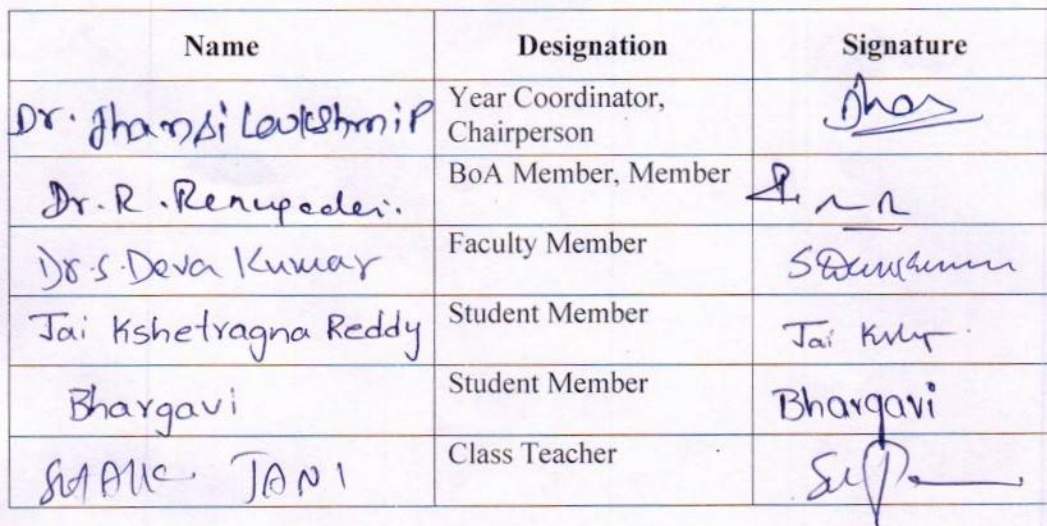 Name Designation Signature
Dr. Jhansi Lakshmi P Year Coordinator, Chairperson
Dr. R. Renugadevi. BoA Member, Member
Dr. S. Deva Kumar Faculty Member
Jai Kshetragna Reddy Student Member Jai
Bhargavi Student Member Bhargavi
JANI Class Teacher